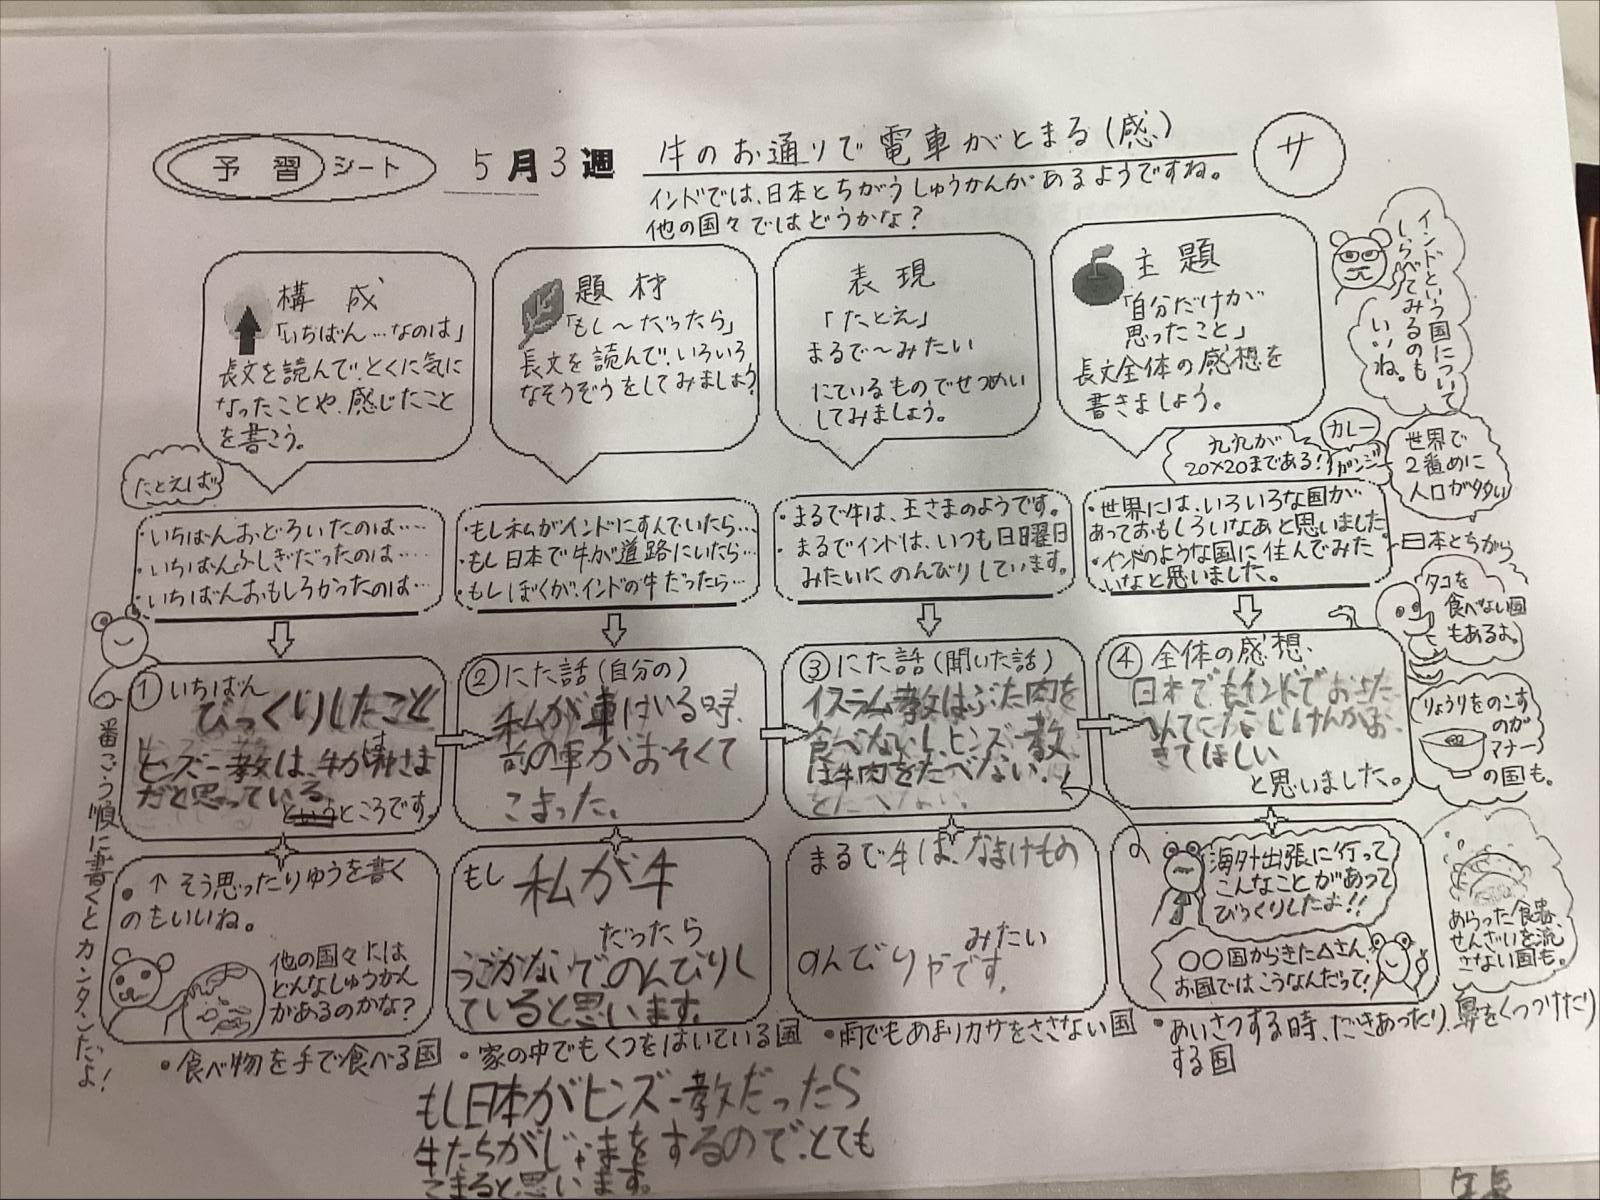 予習シート
5月3週
牛のお通りで電車がとまる(感)
サ
インドでは、日本とちがうしゅうかんがあるようですね。
他の国々ではどうかな?
構成
「いちばん…なのは」
長文を読んで、とくに気に
なったことや、感じたこと
を書こう。
題材
「もし〜だったら」
長文を読んで、いろいろ
なそうぞうをしてみましょう
表現
「たとえ」
まるで〜みたい
にているものでせつめい
してみましょう。
主題
「自分だけが
思ったこと」
長文全体の感想を
書きましょう。
インドという国について
しらべてみるのも
いいね。
たとえば
・いちばんおどろいたのは……
・いちばんふしぎだったのは……
・いちばんおもしろかったのは…
・もし私がインドにすんでいたら…
・もし日本で牛が道路にいたら…
・もしぼくが、インドの牛だったら…
・まるで牛は、王さまのようです。
・まるでインドは、いつも日曜日
みたいにのんびりしています。
・世界には、いろいろな国が
あっておもしろいなあと思いました。
・インドのような国に住んでみた
いなと思いました。
九九が
20×20まである!
カレー
ガンジー
世界で
2番めに
人口が多い
日本とちがう
タコを
食べない国
もあるよ。
りょうりをのこす
のが
マナー
の国も。
あらった食器、
せんざいを流
さない国も。
番ごう順に書くとカンタンだよ!
① いちばん
びっくりしたこと
ヒンズー教は、牛が神さま
だと思っている
というところです。
② にた話(自分の)
私が車にいる時、
前の車がおそくて
こまった。
③ にた話(聞いた話)
イスラム教はぶた肉を
食べないし、ヒンズー教
は牛肉をたべない。
④ 全体の感想
日本でもインドでおきた
と思いました。
きてほしい
・↑そう思ったりゆうを書く
のもいいね。
他の国々には
どんなしゅうかん
があるのかな?
もし 私が牛
だったら
うごかないでのんびりし
ていると思います。
まるで牛は、なまけもの
みたい
のんびりやです。
海外出張に行って
こんなことがあって
びっくりしたよ!!
○○国からきた△さん、
お国ではこうなんだって!
・食べ物を手で食べる国
・家の中でもくつをはいている国
・雨でもあまりカサをささない国
・あいさつする時、だきあったり、鼻をくっつけたり
する国
もし日本がヒンズー教だったら
牛たちがじゃまをするので、とても
こまると思います。